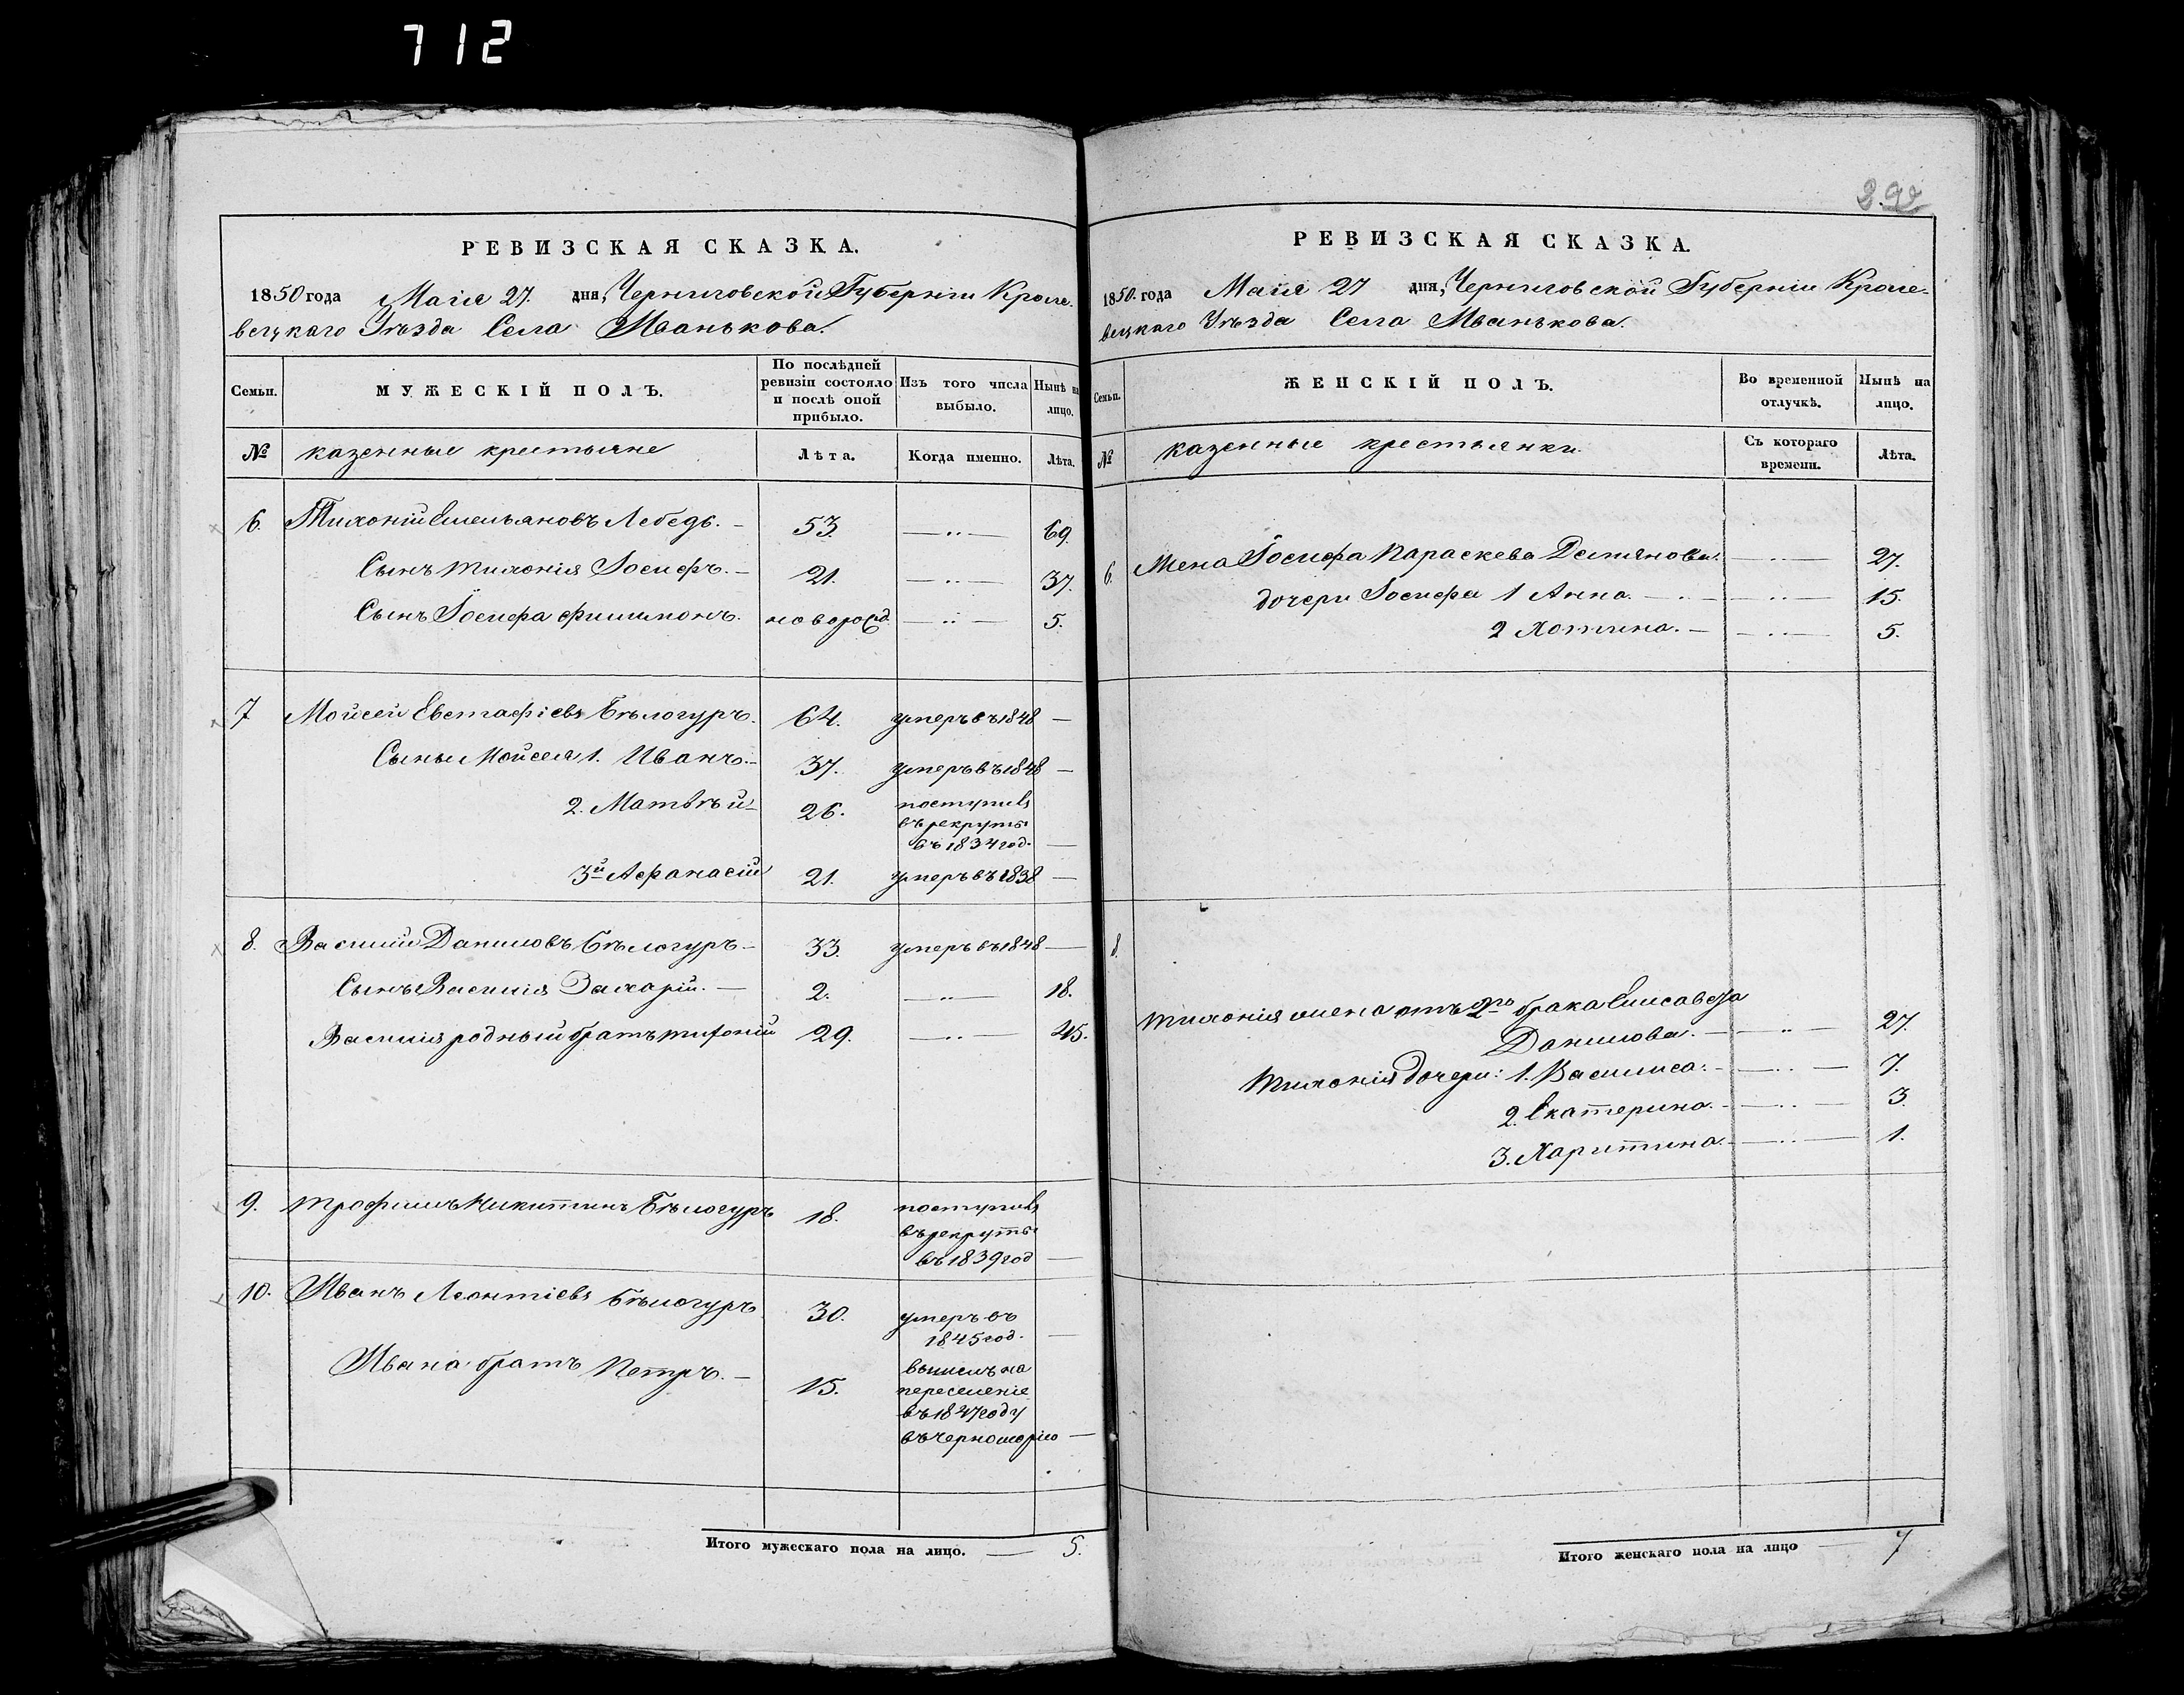 712
РЕВИЗСКАЯ СКАЗКА.
1850 года Маія 27. дня, Черниговской Губерніи Кроле-
вецкаго Уѣзда Села Иванькова.
Семьи. МУЖЕСКІЙ ПОЛЪ. По послѣдней ревизіи состояло и послѣ оной прибыло. Изъ того числа выбыло. Нынѣ на лицо.
№ казенные крестьяне Лѣта. Когда именно. Лѣта.
6. Тихоній Емельяновъ Лебедь. 53. 69.
Сынъ Тихонія Іосифъ. 21. 37.
Сынъ Іосифа Филимонъ. новорожд 5.
7 Мойсей Евстафіевъ Бѣлогуръ. 64. умеръ въ 1848
Сыны Мойсея 1. Иванъ. 37. умеръ въ 1848
2. Матвѣй 26. поступивъ
въ рекруты
въ 1834 год.
3й Афанасій 21. умеръ въ 1838
8. Василій Даниловъ Бѣлогуръ 33. умеръ въ 1848
Сынъ Василія Захарій. 2. 18.
Василія родный братъ Тихоній 29. 45.
9. Трофимъ Никитинъ Бѣлогуръ 18. поступивъ
въ рекруты
въ 1839 год
10. Иванъ Леонтіевъ Бѣлогуръ 30. умеръ въ
1845 год.
Ивана братъ Петръ. 15. вышелъ на
переселеніе
въ 1847 году
въ Черноморію
Итого мужескаго пола на лицо. 5.
РЕВИЗСКАЯ СКАЗКА.
1850 года Маія 27 дня, Черниговской Губерніи Кроле-
вецкаго Уѣзда Села Иванькова.
Семьи. ЖЕНСКІЙ ПОЛЪ. Во временной отлучкѣ. Нынѣ на лицо.
№ казенные крестьянки. Съ котораго времени. Лѣта.
6. Жена Іосифа Параскева Демянова. 27.
дочери Іосифа 1 Анна. 15.
2 Хотина. 5.
8.
Тихонія жена отъ 2го брака Елисавета
Данилова. 27.
Тихонія дочери: 1. Василиса. 7.
2. Екатерина. 3.
3. Харитина. 1.
Итого женскаго пола на лицо 7